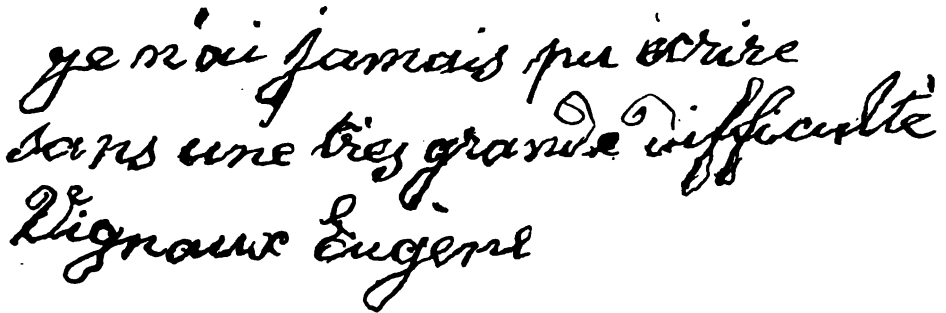 je n'ai jamais pu écrire
sans une très grande difficulté
Vignaux Eugène